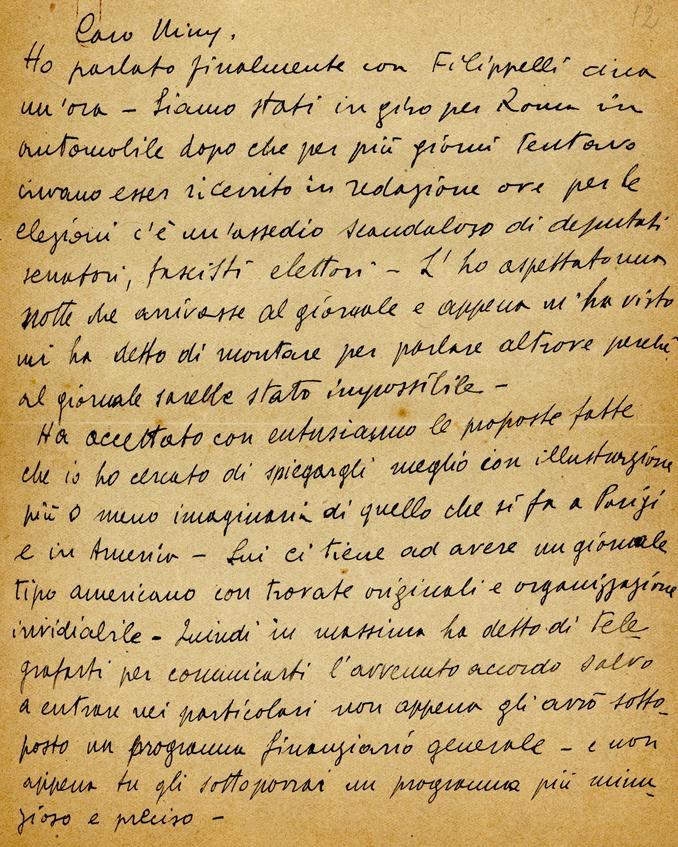 12
Caro Miny,
Ho parlato finalmente con Filippelli circa
un'ora - Siamo stati in giro per Roma in
automobile dopo che per più giorni tentavo
invano esser ricevuto in redazione ove per le
elezioni c'è un'assedio scandaloso di deputati
senatori, fascisti elettori - L'ho aspettato una
notte che arrivasse al giornale e appena m'ha visto
mi ha detto di montare per parlare altrove perché
al giornale sarebbe stato impossibile -
Ha accettato con entusiasmo le proposte fatte
che io ho cercato di spiegargli meglio con illustrazione
più o meno imaginaria di quello che si fa a Parigi
e in America - Lui ci tiene ad avere un giornale
tipo americano con trovate originali e organizzazione
invidiabile - Quindi in massima ha detto di tele-
grafarti per comunicarti l'avvenuto accordo salvo
a entrare nei particolari non appena gli avrò sotto-
posto un programma finanziario generale - e non
appena tu gli sottoporrai un programma più minu-
zioso e preciso -